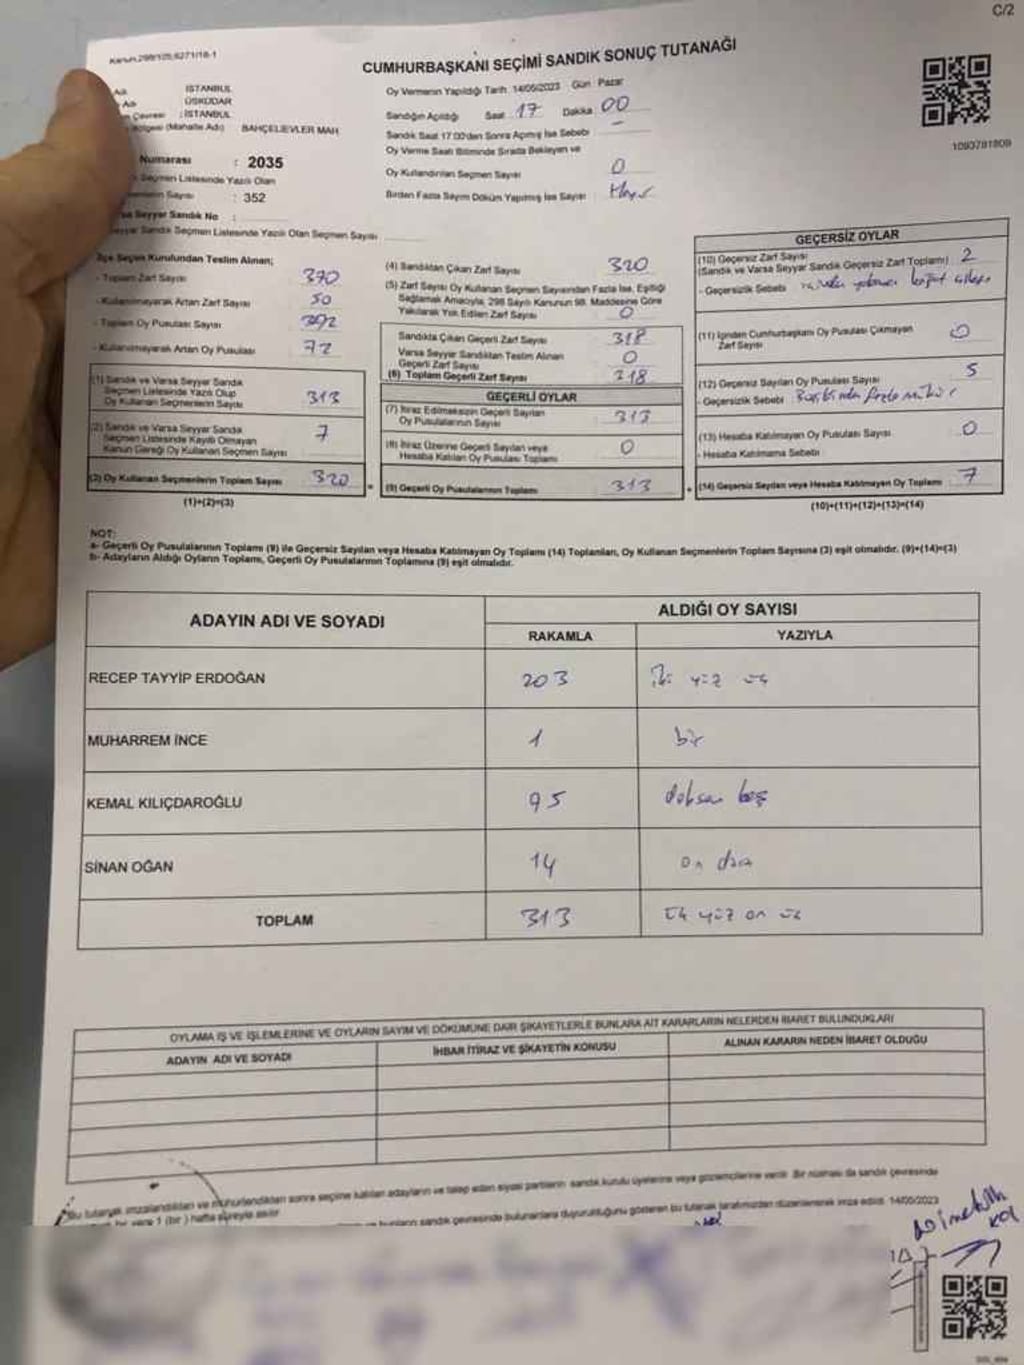 C/2
Kanun:298/105;6271/18-1
CUMHURBAŞKANI SEÇİMİ SANDIK SONUÇ TUTANAĞI
Adı İSTANBUL
Adı ÜSKÜDAR
Çevresi : İSTANBUL
Bölgesi (Mahalle Adı) BAHÇELİEVLER MAH.
Numarası : 2035
Seçmen Listesinde Yazılı Olan
Sayısı : 352
Varsa Seyyar Sandık No :
Seyyar Sandık Seçmen Listesinde Yazılı Olan Seçmen Sayısı
Oy Vermenin Yapıldığı Tarih 14/05/2023 Gün Pazar
Sandığın Açıldığı Saat 17 Dakika 00
Sandık Saat 17:00'den Sonra Açılmış İse Sebebi –
Oy Verme Saati Bitiminde Sırada Bekleyen ve
Oy Kullandırılan Seçmen Sayısı 0
Birden Fazla Sayım Döküm Yapılmış İse Sayısı Hayır
1093781809
İlçe Seçim Kurulundan Teslim Alınan;
- Toplam Zarf Sayısı 370
- Kullanılmayarak Artan Zarf Sayısı 50
- Toplam Oy Pusulası Sayısı 392
- Kullanılmayarak Artan Oy Pusulası 72
(1) Sandık ve Varsa Seyyar Sandık
Seçmen Listesinde Yazılı Olup
Oy Kullanan Seçmenlerin Sayısı 313
(2) Sandık ve Varsa Seyyar Sandık
Seçmen Listesinde Kayıtlı Olmayan
Kanun Gereği Oy Kullanan Seçmen Sayısı 7
(3) Oy Kullanan Seçmenlerin Toplam Sayısı 320
(1)+(2)=(3)
(4) Sandıktan Çıkan Zarf Sayısı 320
(5) Zarf Sayısı Oy Kullanan Seçmen Sayısından Fazla İse, Eşitliği
Sağlamak Amacıyla, 298 Sayılı Kanunun 98. Maddesine Göre
Yakılarak Yok Edilen Zarf Sayısı 0
Sandıkta Çıkan Geçerli Zarf Sayısı 318
Varsa Seyyar Sandıktan Teslim Alınan
Geçerli Zarf Sayısı 0
(6) Toplam Geçerli Zarf Sayısı 318
GEÇERLİ OYLAR
(7) İtiraz Edilmeksizin Geçerli Sayılan
Oy Pusulalarının Sayısı 313
(8) İtiraz Üzerine Geçerli Sayılan veya
Hesaba Katılan Oy Pusulası Toplamı 0
(9) Geçerli Oy Pusulalarının Toplamı 313
GEÇERSİZ OYLAR
(10) Geçersiz Zarf Sayısı 2
(Sandık ve Varsa Seyyar Sandık Geçersiz Zarf Toplamı)
- Geçersizlik Sebebi
(11) İçinden Cumhurbaşkanı Oy Pusulası Çıkmayan
Zarf Sayısı 0
(12) Geçersiz Sayılan Oy Pusulası Sayısı 5
- Geçersizlik Sebebi fazla mühür
(13) Hesaba Katılmayan Oy Pusulası Sayısı 0
- Hesaba Katılmama Sebebi
(14) Geçersiz Sayılan veya Hesaba Katılmayan Oy Toplamı 7
(10)+(11)+(12)+(13)=(14)
NOT:
a- Geçerli Oy Pusulalarının Toplamı (9) ile Geçersiz Sayılan veya Hesaba Katılmayan Oy Toplamı (14) Toplamları, Oy Kullanan Seçmenlerin Toplam Sayısına (3) eşit olmalıdır. (9)+(14)=(3)
b- Adayların Aldığı Oyların Toplamı, Geçerli Oy Pusulalarının Toplamına (9) eşit olmalıdır.
ADAYIN ADI VE SOYADI ALDIĞI OY SAYISI
RAKAMLA YAZIYLA
RECEP TAYYİP ERDOĞAN 203 iki yüz üç
MUHARREM İNCE 1 bir
KEMAL KILIÇDAROĞLU 95 doksan beş
SİNAN OĞAN 14 on dört
TOPLAM 313 üç yüz on üç
OYLAMA İŞ VE İŞLEMLERİNE VE OYLARIN SAYIM VE DÖKÜMÜNE DAİR ŞİKAYETLERLE BUNLARA AİT KARARLARIN NELERDEN İBARET BULUNDUKLARI
ADAYIN ADI VE SOYADI İHBAR İTİRAZ VE ŞİKAYETİN KONUSU ALINAN KARARIN NEDEN İBARET OLDUĞU
Bu tutanak imzalandıktan ve mühürlendikten sonra seçime katılan adayların ve talep eden siyasi partilerin sandık kurulu üyelerine veya gözlemcilerine verilir. Bir nüshası da sandık çevresinde
bir yere 1 (bir) hafta süreyle asılır.
bunların sandık çevresinde bulunanlara duyurulduğunu gösteren bu tutanak tarafımızdan düzenlenerek imza edildi. 14/05/2023